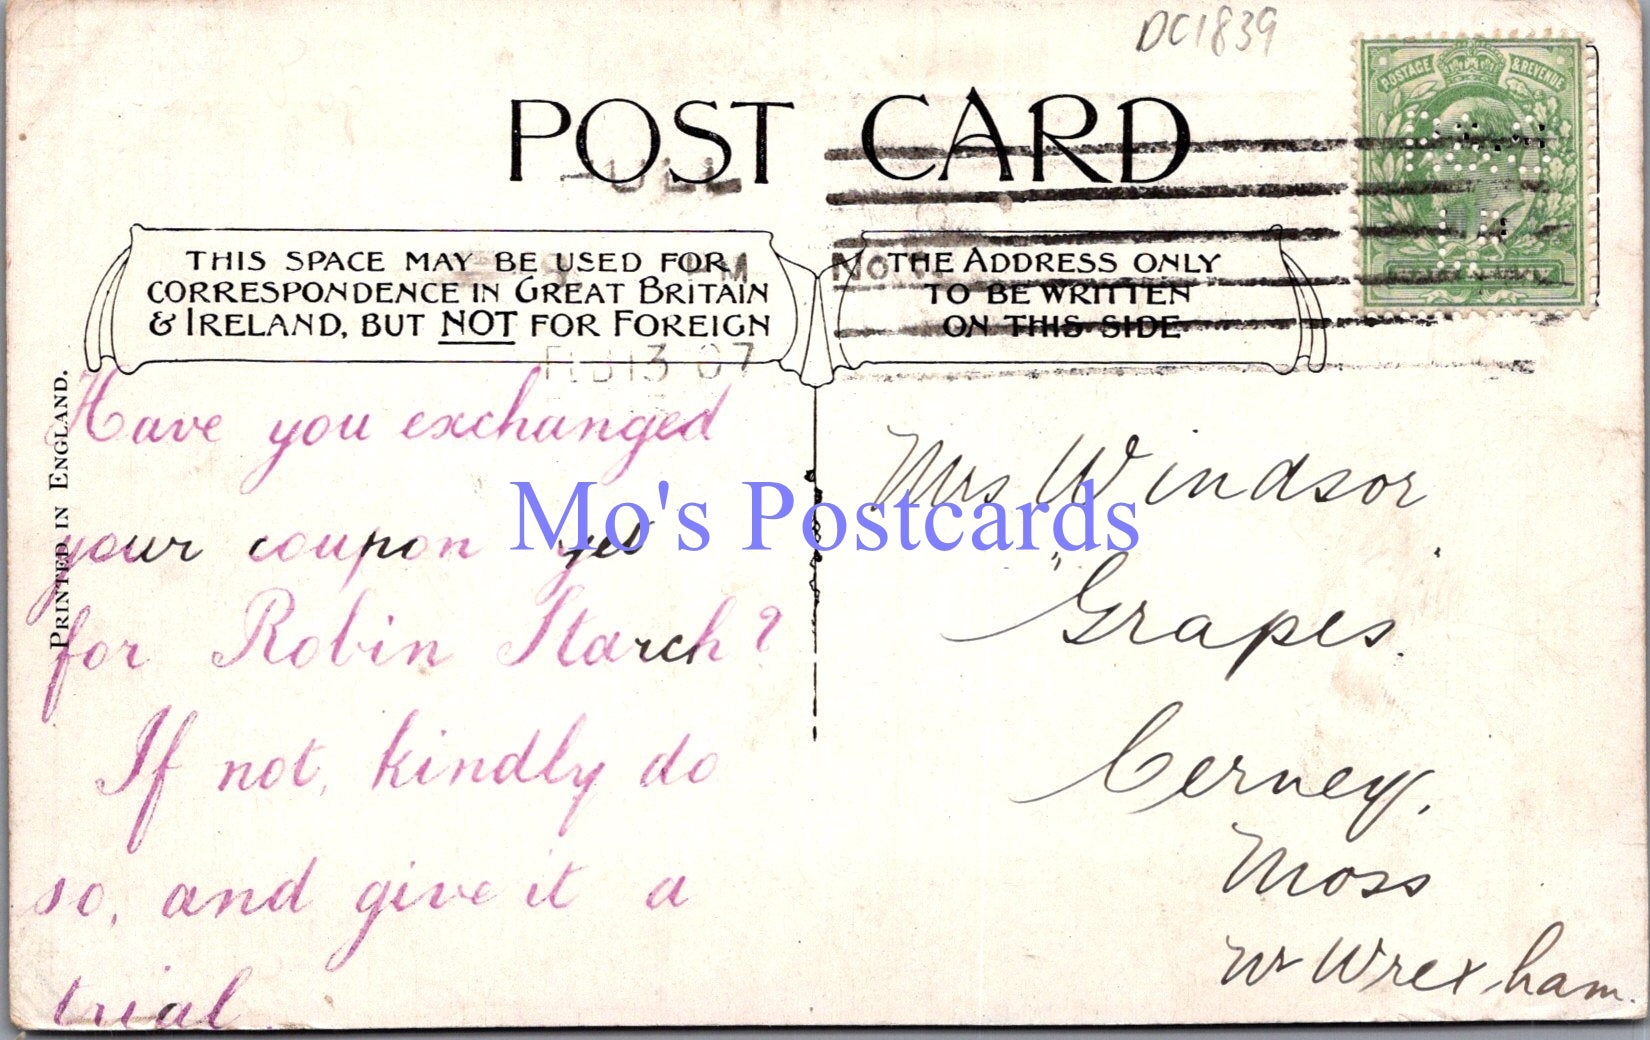 DC1839
POSTAGE & REVENUE
POST CARD
HULL
FEB 13 07
THIS SPACE MAY BE USED FOR
CORRESPONDENCE IN GREAT BRITAIN
& IRELAND, BUT NOT FOR FOREIGN
THE ADDRESS ONLY
TO BE WRITTEN
ON THIS SIDE
PRINTED IN ENGLAND.
Have you exchanged
your coupon yet
for Robin Starch?
If not, kindly do
so, and give it a
trial.
Mo's Postcards
Mrs Windsor
"Grapes."
Cerney,
Moss
Nr Wrexham.